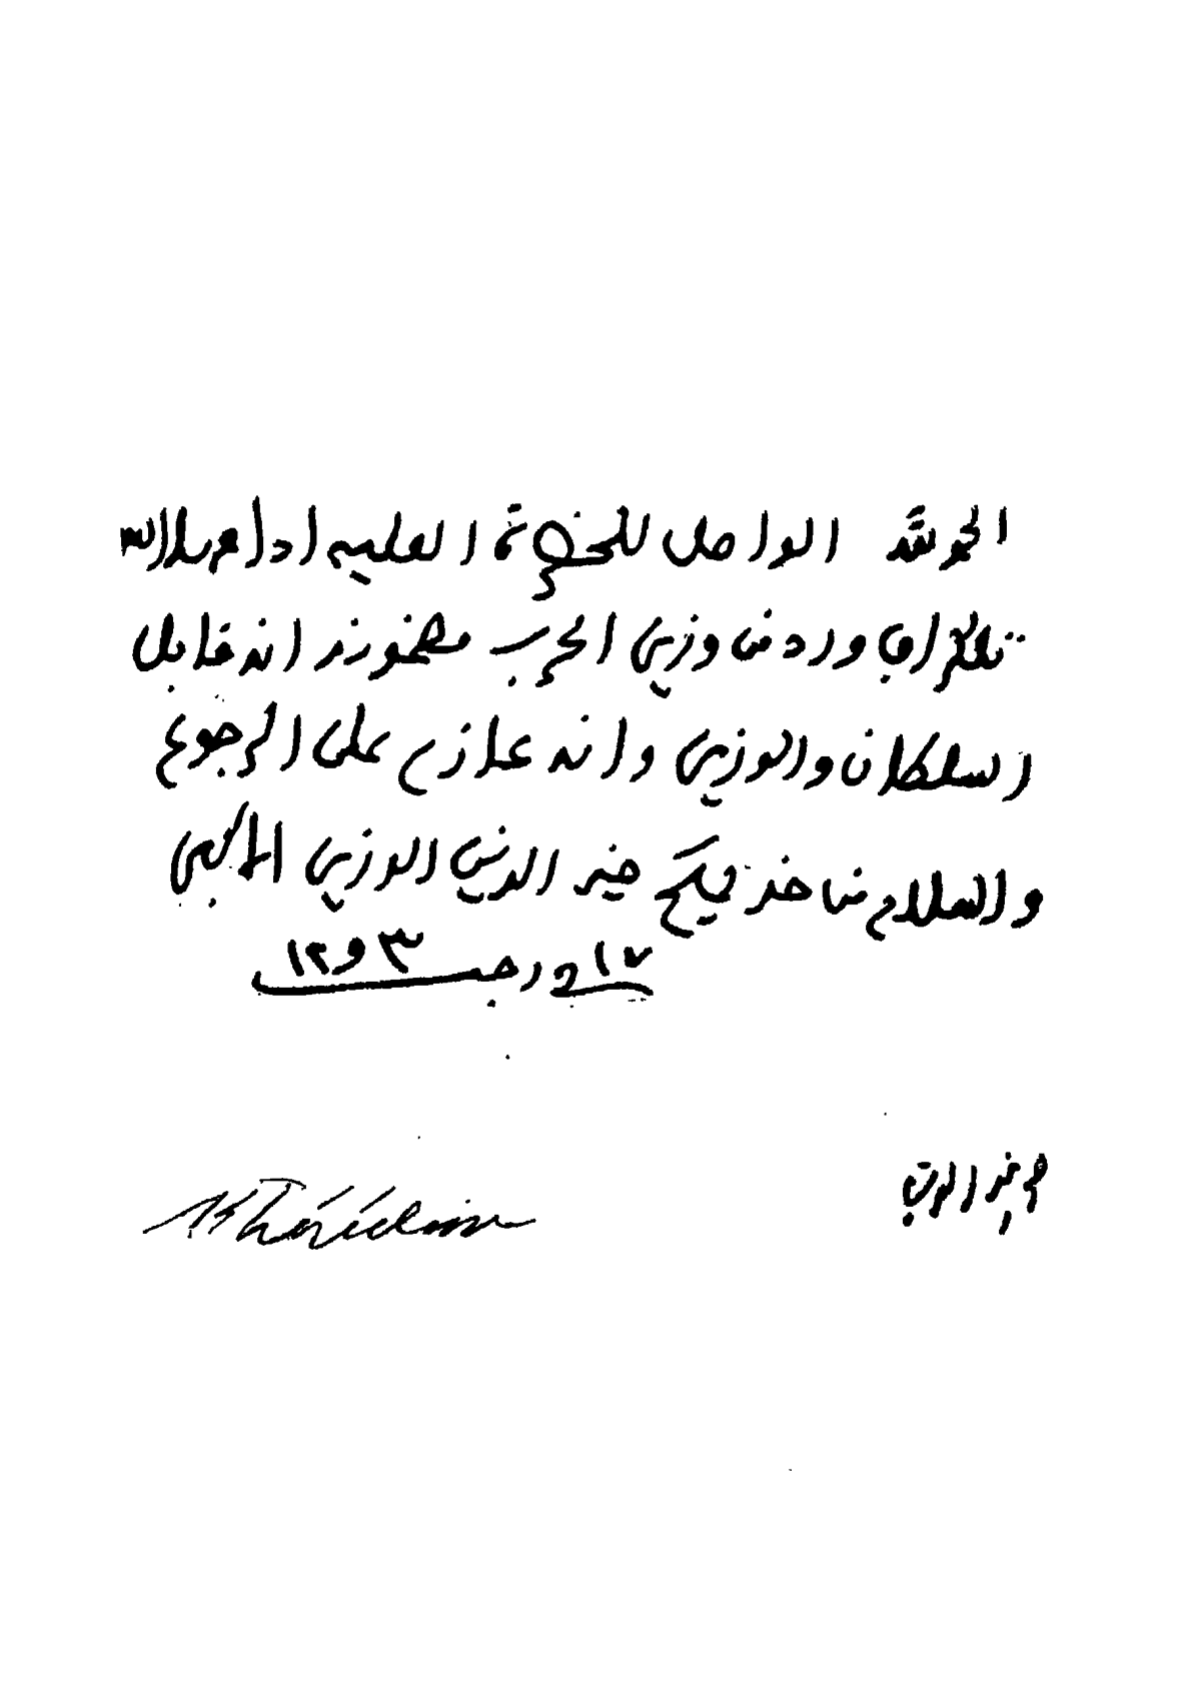 الحمد لله الواصل للحضرة العلية ادام علاها الله
تلكرافي ورد من وزير الحرب مضمونه انه قابل
السلطان والوزير وانه عازم على الرجوع
والسلام من خديمكم خير الدين الوزير الاكبر
١٧ رجب ١٢٩٣
خير الدين
Khérédine